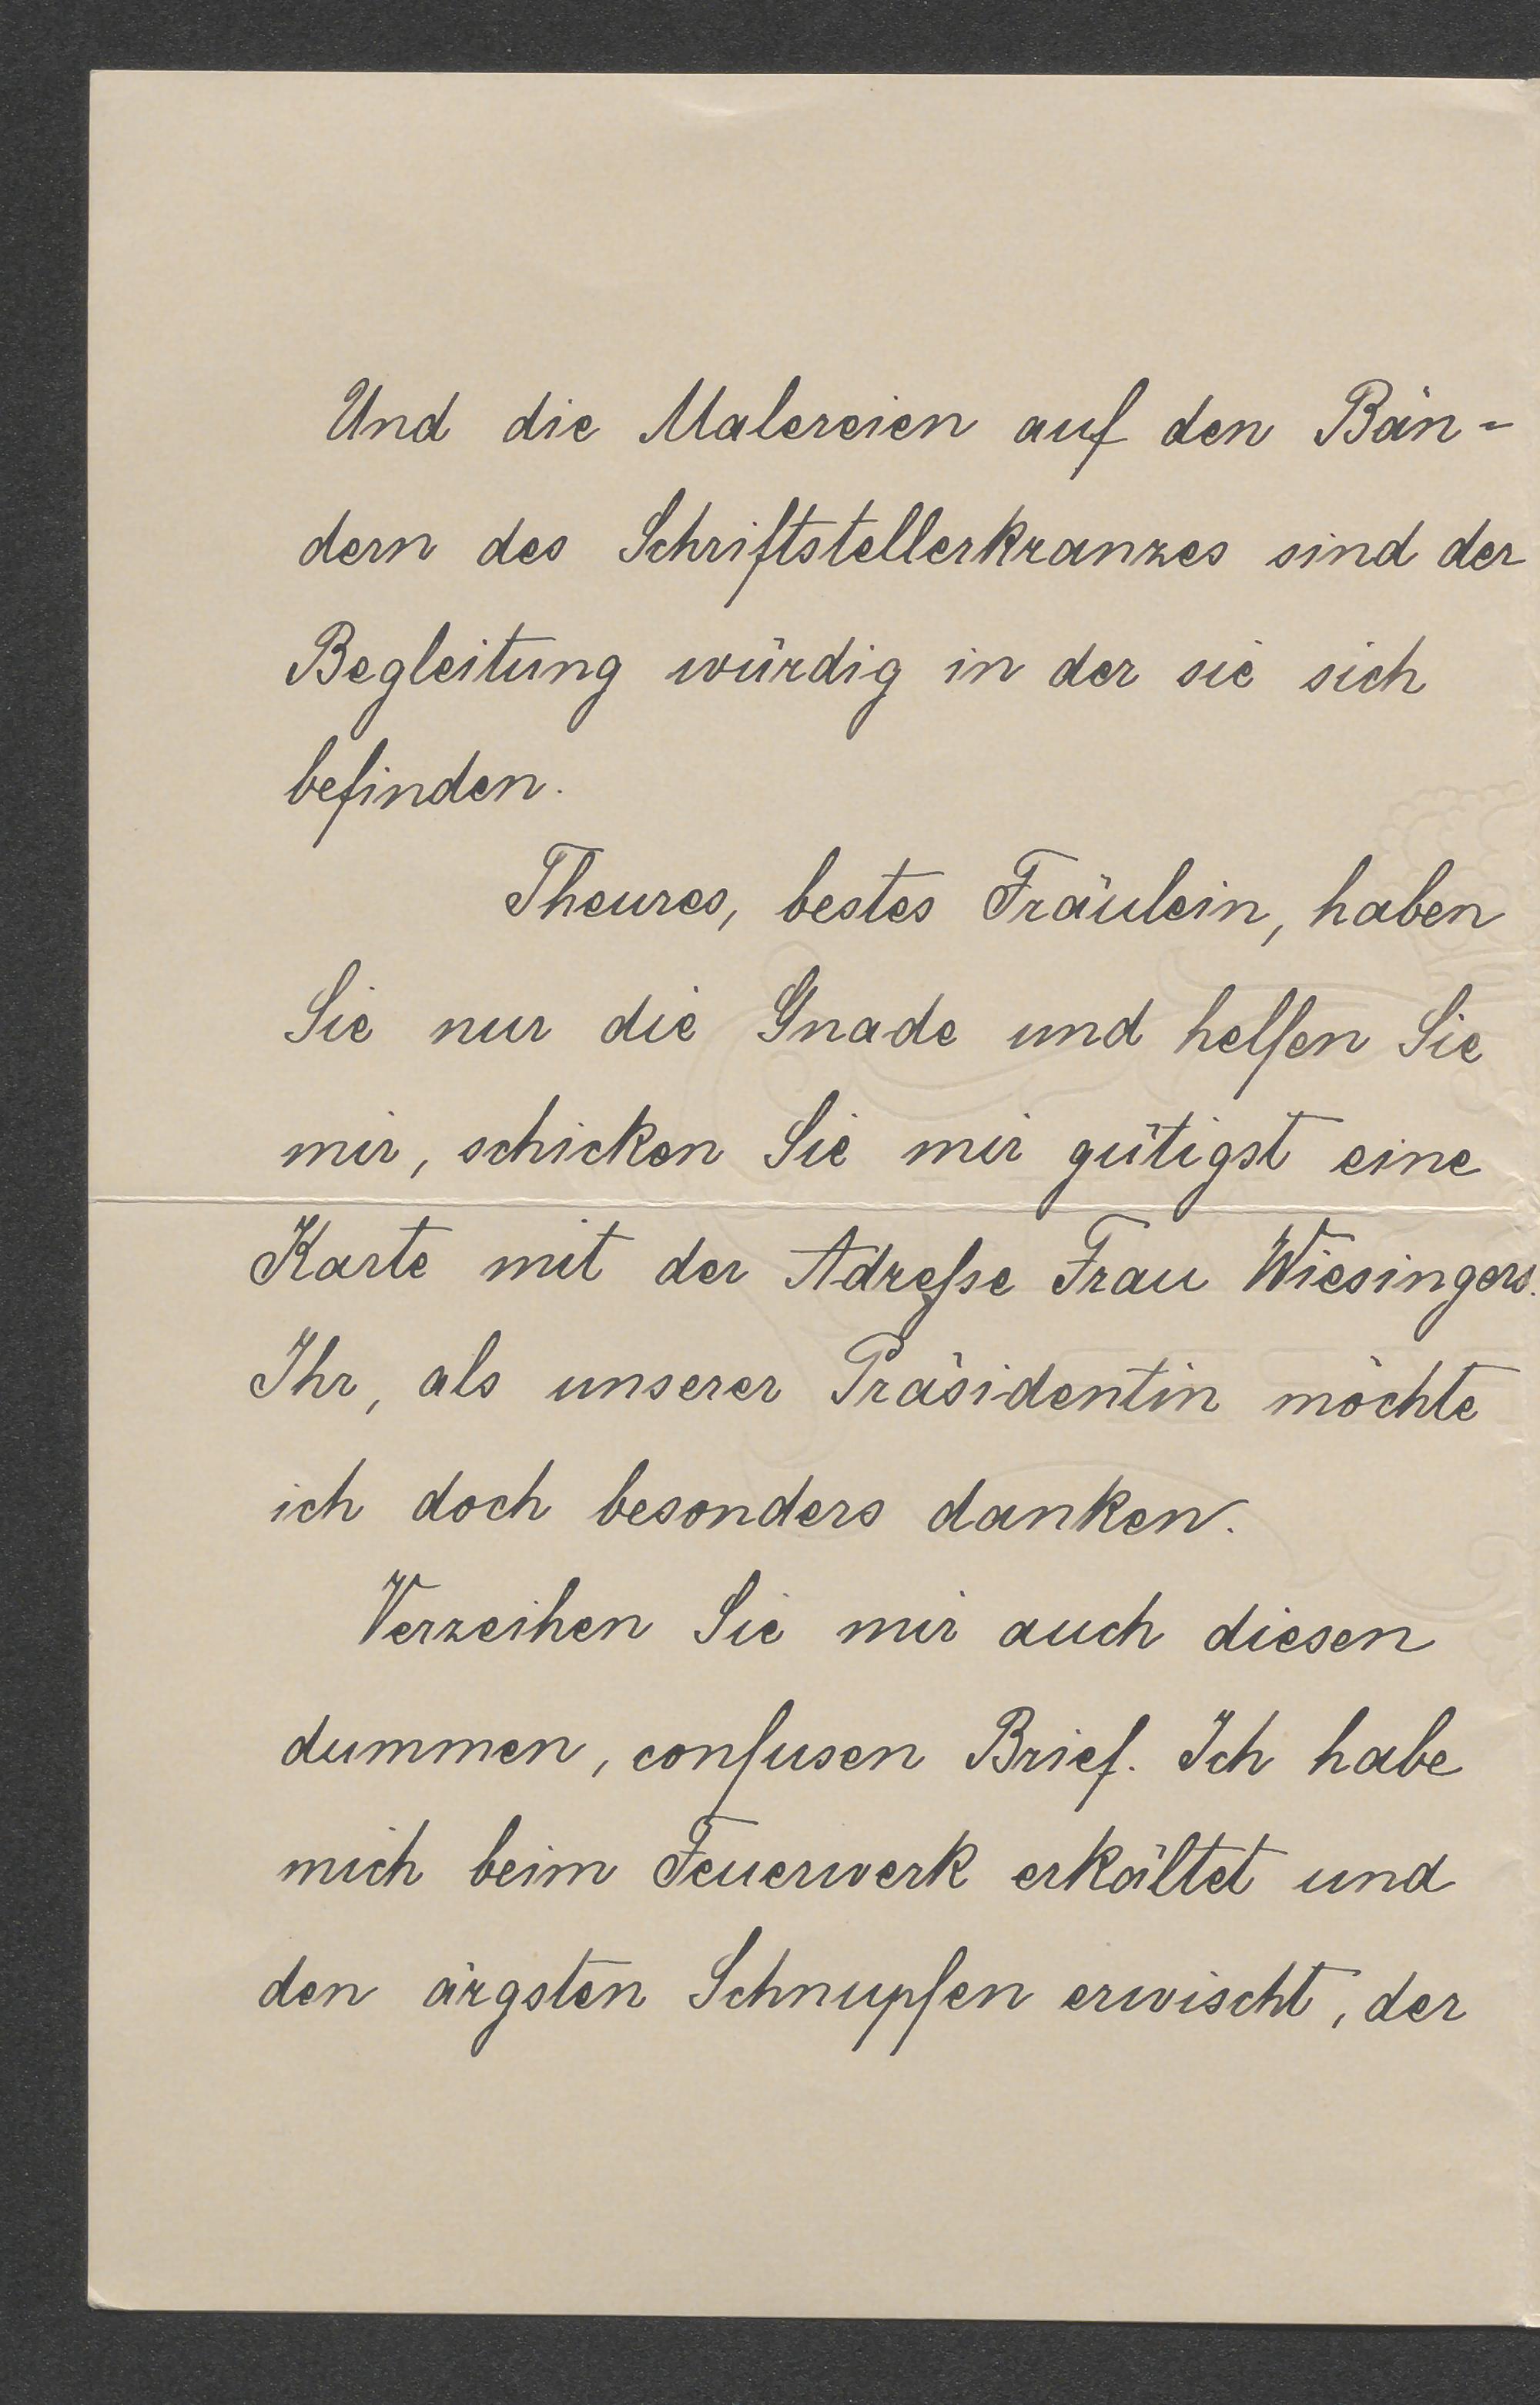 Und die Malereien auf den Bän-
dern des Schriftstellerkranzes sind der
Begleitung würdig in der sie sich
befinden.
Theures, bestes Fräulein, haben
Sie nur die Gnade und helfen Sie
mir, schicken Sie mir gütigst eine
Karte mit der Adreſse Frau Wiesingers.
Ihr, als unserer Präsidentin möchte
ich doch besonders danken.
Verzeihen Sie mir auch diesen
dummen, confusen Brief. Ich habe
mich beim Feuerwerk erkältet und
den ärgsten Schnupfen erwischt, der